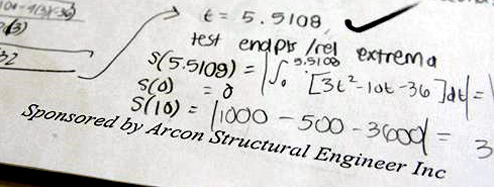 t = 5.5108
test endpts/rel extrema
S(5.5109) = |∫₀^5.5108 [3t²-10t-36]dt| =
S(0) = 0
S(10) = |1000 - 500 - 3600| = 3
Sponsored by Arcon Structural Engineer Inc